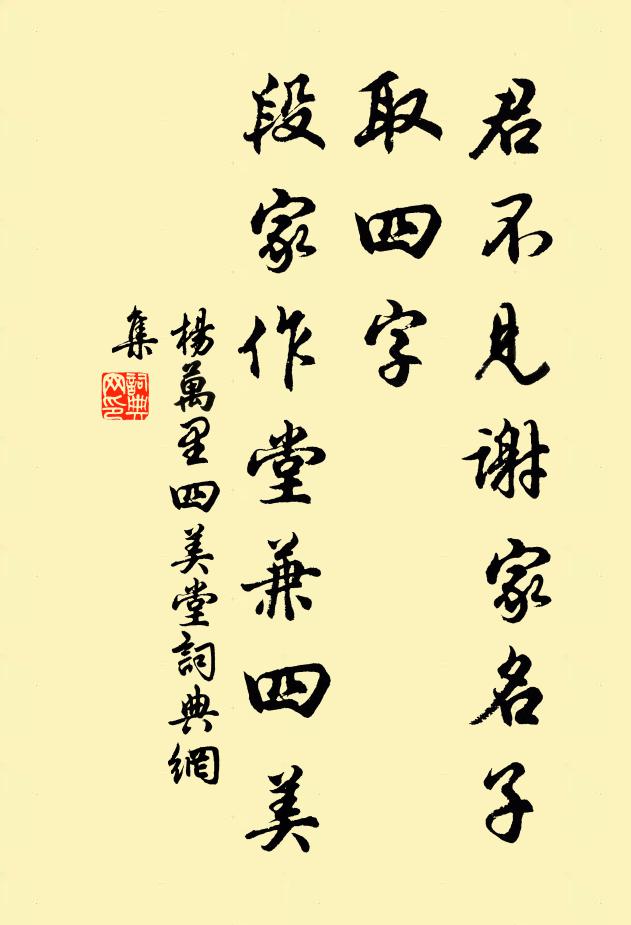 君不見謝家名子
取四字
段家作堂兼四美
楊萬里四美堂詞典網
集
詞典
网印